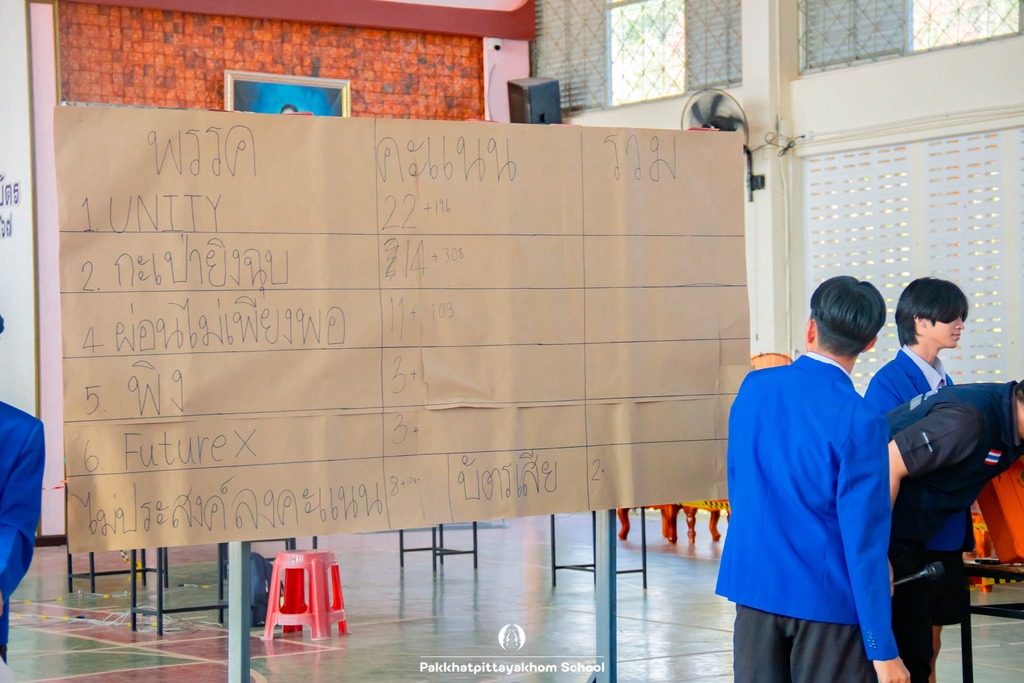 พรรค คะแนน รวม
1. UNITY 22 +196
2. กะเป่ายิงฉุบ 14 + 308
4 ผ่อนไม่เพียงพอ 11 + 103
5. พิง 3+
6. Futurex 3+
ไม่ประสงค์ลงคะแนน 8+ บัตรเสีย 2.
บัตร
Pakkhatpittayakhom School